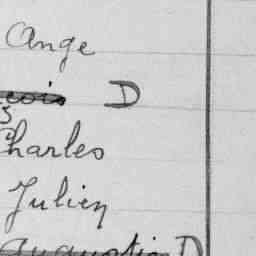 Ange
D
Charles
Julien
Augustin D